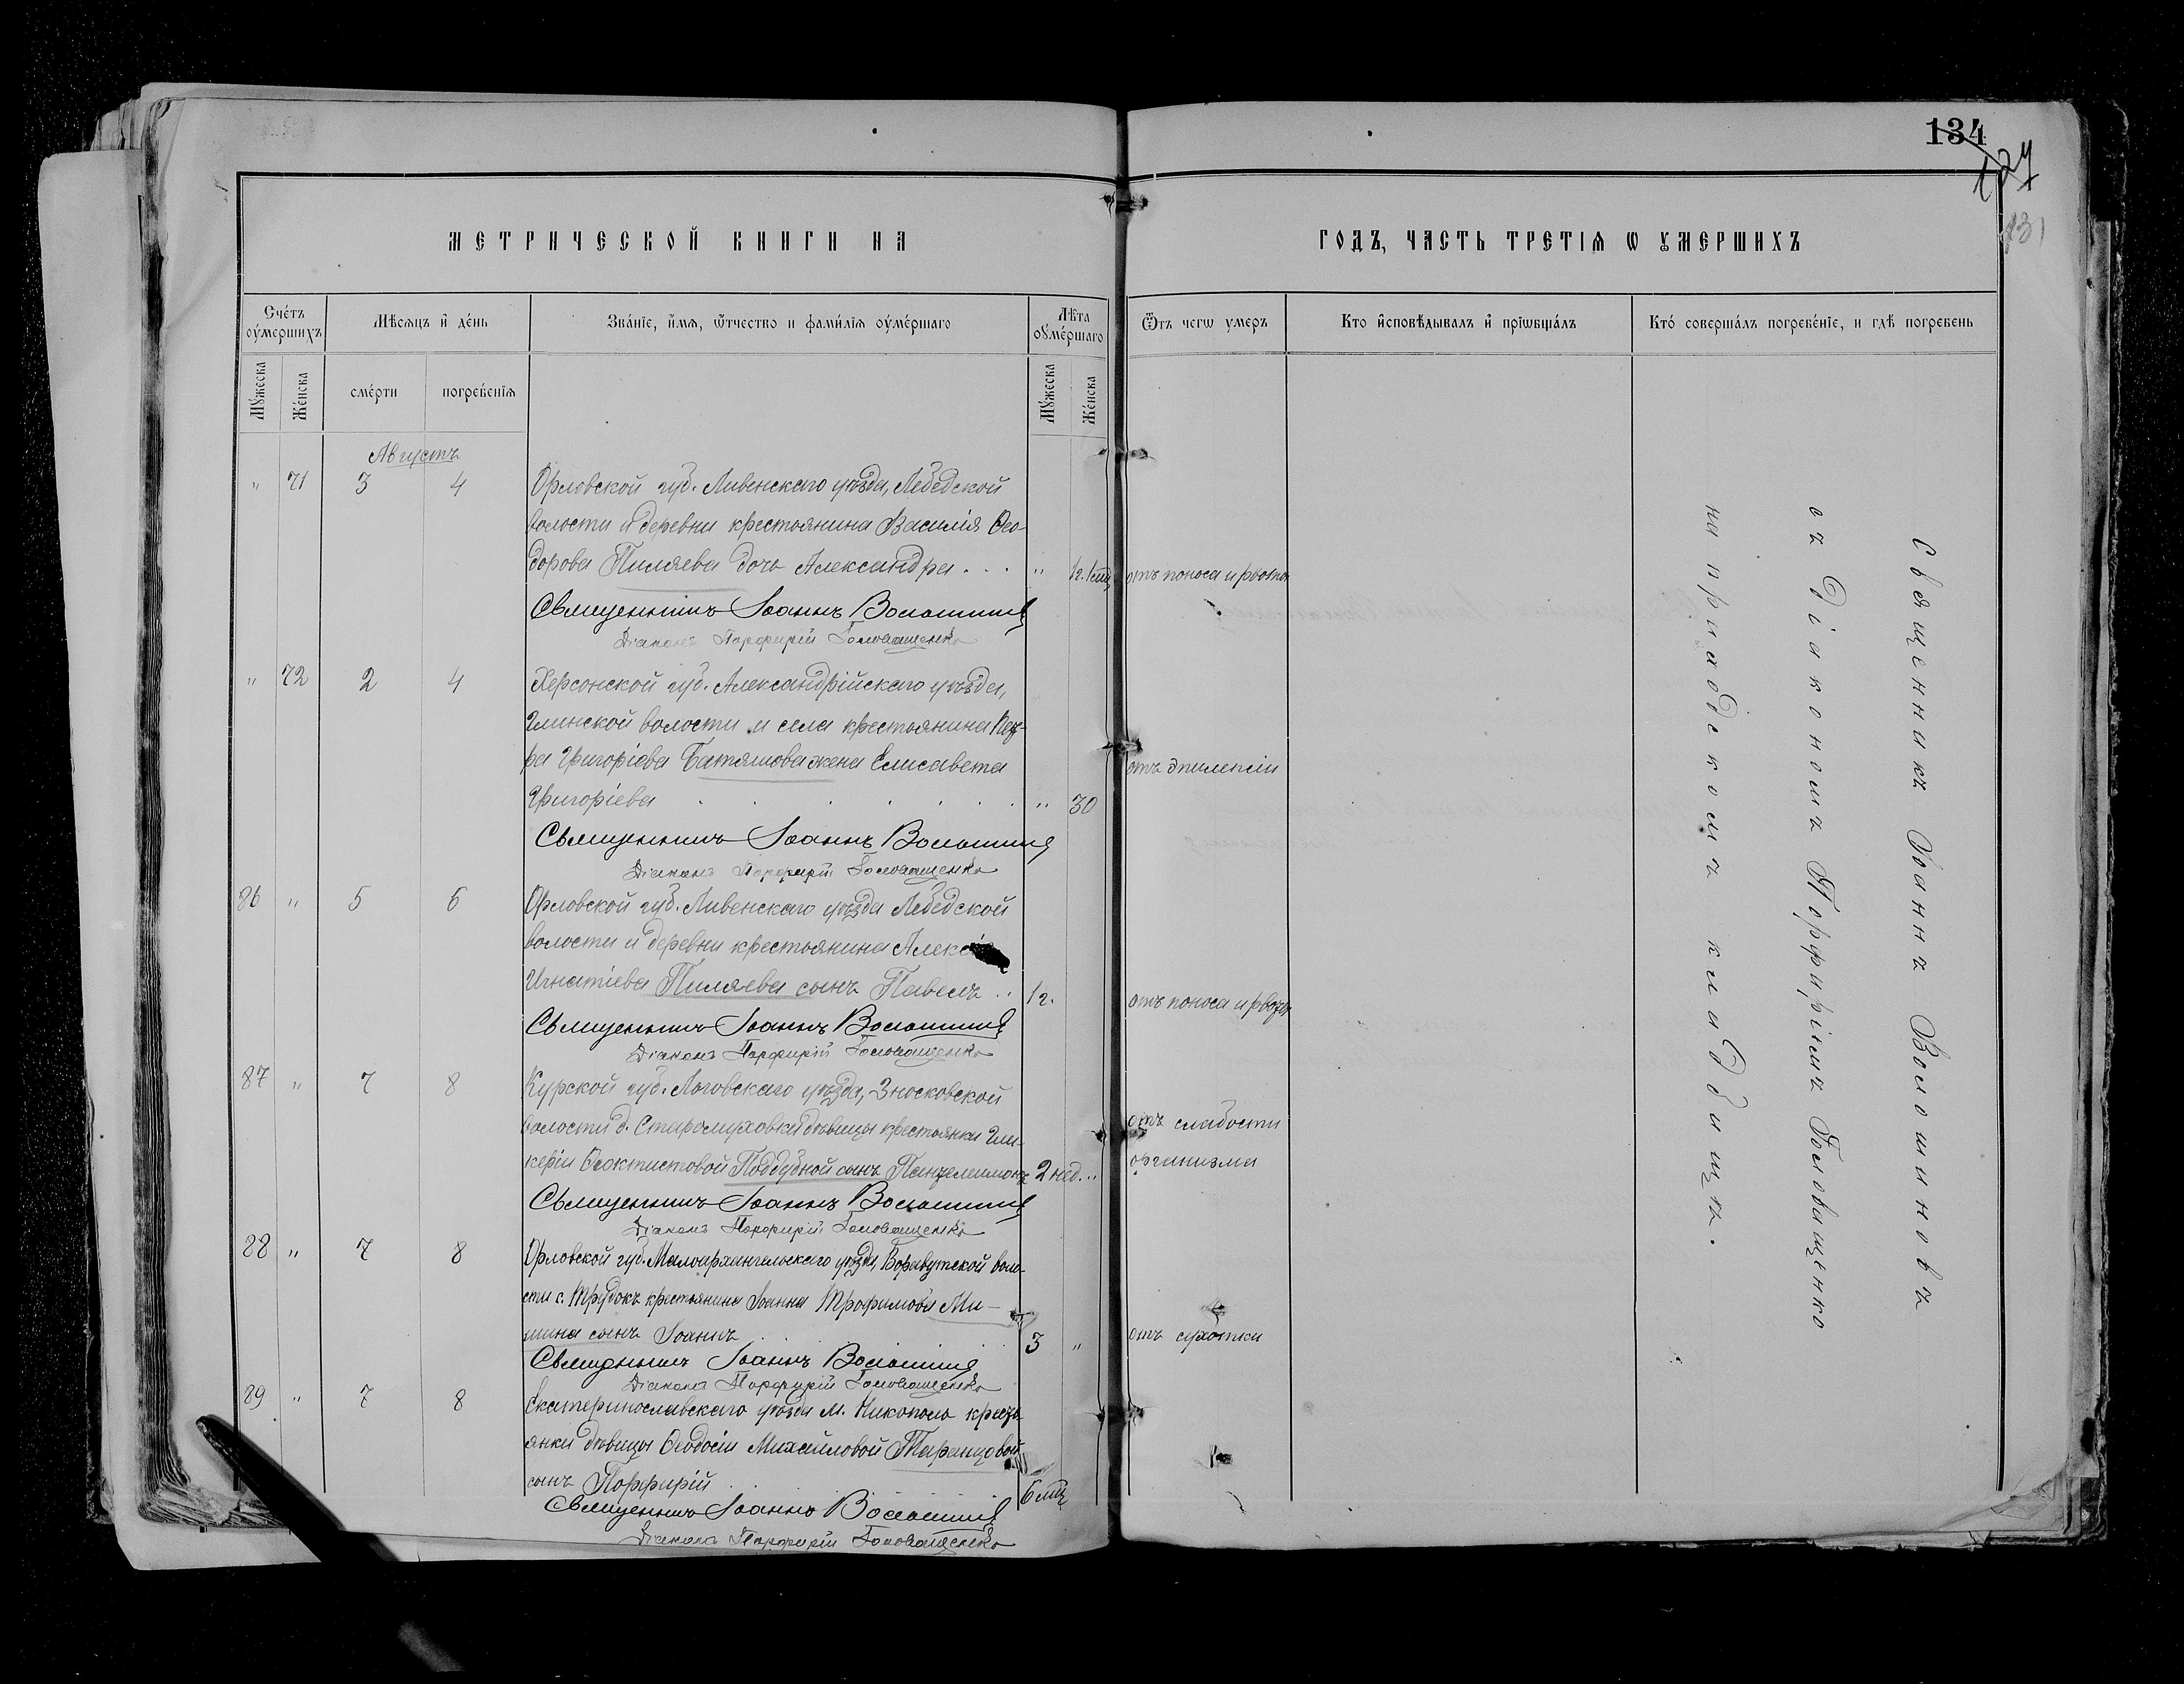 134
127
131
МЕТРИЧЕСКОЙ КНИГИ НА
ГОДЪ, ЧАСТЬ ТРЕТІЯ Ѡ УМЕРШИХЪ
Счетъ оумершихъ
Мѣсяцъ и день
Званіе, имя, отчество и фамилія оумершаго
Лѣта оумершаго
Ѿтъ чегѡ умеръ
Кто исповѣдывалъ и пріѡбщалъ
Кто совершалъ погребеніе, и гдѣ погребенъ
Мужеска
Женска
смерти
погребенія
Мужеска
Женска
Августъ
" 71 3 4 Орловской губ. Ливенскаго уѣзда, Лебедской
волости и деревни крестьянина Василія Ѳео-
дорова Пиляева дочь Александра . . . " 1г. 1мц отъ поноса и рвоты
Священникъ Іоаннъ Волошинъ
Діаконъ Порфирій Головащенко
" 72 2 4 Херсонской губ. Александрійскаго уѣзда,
Глинской волости и села крестьянина Пет-
ра Григоріева Батяшова жена Елисавета отъ эпилепсіи
Григоріева . . . . . . . " 30
Священникъ Іоаннъ Волошинъ
Діаконъ Порфирій Головащенко
86 " 5 6 Орловской губ. Ливенскаго уѣзда Лебедской
волости и деревни крестьянина Алексія
Игнатіева Пиляева сынъ Павелъ . . 1г. отъ поноса и рвоты
Священникъ Іоаннъ Волошинъ
Діаконъ Порфирій Головащенко
87 " 7 8 Курской губ. Льговскаго уѣзда, Зносковской
волости д. дѣвицы крестьянки Гли- отъ слабости
керіи Ѳеоктистовой Поддубной сынъ Пантелеимонъ 2 нед. " организма
Священникъ Іоаннъ Волошинъ
Діаконъ Порфирій Головащенко
88 " 7 8 Орловской губ. Малоархангельскаго уѣзда, воло-
сти с. Трудокъ крестьянина Іоанна Трофимова Ми-
шина сынъ Іоаннъ . . . 3 " отъ сухотки
Священникъ Іоаннъ Волошинъ
Діаконъ Порфирій Головащенко
89 " 7 8 Екатеринославскаго уѣзда м. Никополь кресть-
янки дѣвицы Ѳеодосіи Михайловой Таранцовой
сынъ Порфирій . . . 6 мцъ
Священникъ Іоаннъ Волошинъ
Діаконъ Порфирій Головащенко
Священникъ Іоаннъ Волошиновъ
съ Діакономъ Порфиріемъ Головащенко
на приходскомъ кладбищѣ.